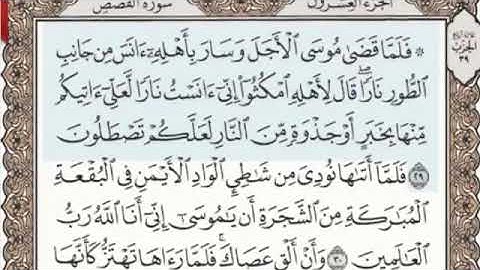 الجزء العشرون
سورة القصص
۞ فَلَمَّا قَضَىٰ مُوسَى ٱلْأَجَلَ وَسَارَ بِأَهْلِهِۦٓ ءَانَسَ مِن جَانِبِ
ٱلطُّورِ نَارًاۖ قَالَ لِأَهْلِهِ ٱمْكُثُوٓا۟ إِنِّىٓ ءَانَسْتُ نَارًا لَّعَلِّىٓ ءَاتِيكُم
مِّنْهَا بِخَبَرٍ أَوْ جَذْوَةٍ مِّنَ ٱلنَّارِ لَعَلَّكُمْ تَصْطَلُونَ
٢٩ فَلَمَّآ أَتَىٰهَا نُودِىَ مِن شَٰطِئِ ٱلْوَادِ ٱلْأَيْمَنِ فِى ٱلْبُقْعَةِ
ٱلْمُبَٰرَكَةِ مِنَ ٱلشَّجَرَةِ أَن يَٰمُوسَىٰٓ إِنِّىٓ أَنَا ٱللَّهُ رَبُّ
ٱلْعَٰلَمِينَ ٣٠ وَأَنْ أَلْقِ عَصَاكَۖ فَلَمَّا رَءَاهَا تَهْتَزُّ كَأَنَّهَا
الحزب
٣٩